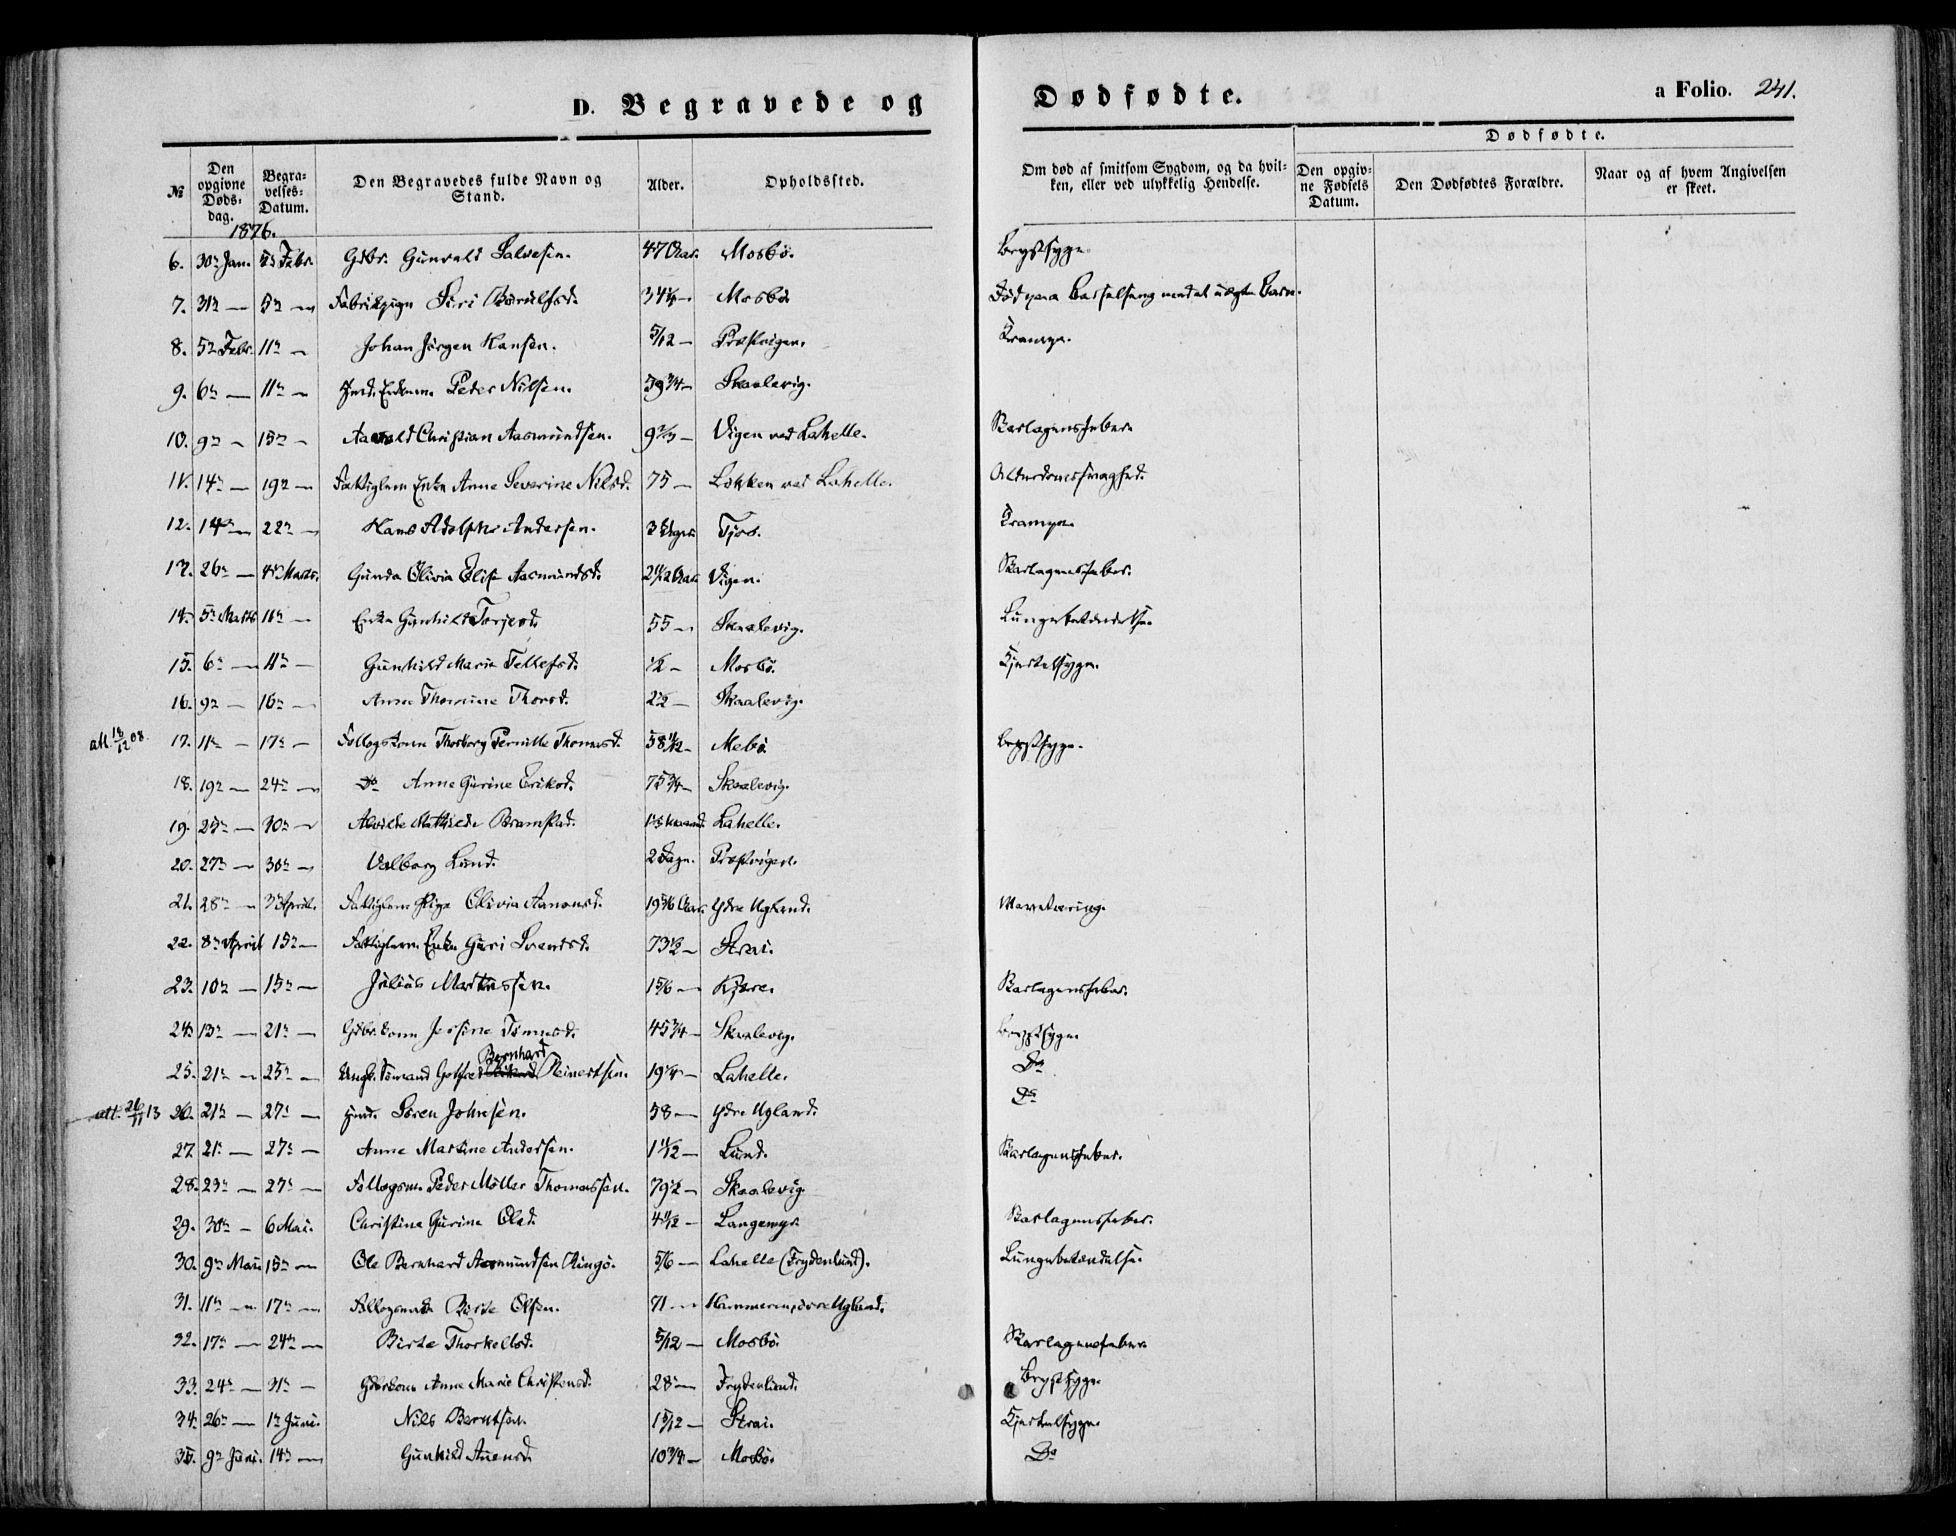 D. Begravede og Dødfødte. a Folio. 241.
Dødfødte.
№ Den opgivne Døds-dag. Begra-velses-Datum. Den Begravedes fulde Navn og Stand. Alder. Opholdssted. Om død af smitsom Sygdom, og da hvil-ken, eller ved ulykkelig Hendelse. Den opgiv-ne Fødsels Datum. Den Dødfødtes Forældre. Naar og af hvem Angivelsen er skeet.
1876.
6. 30te Jan. 5te Febr. Gdbr. Gunvald Salvesen. 47 Aar. Mosbö. Brystsyge.
7. 31te — 5te — Fabrikpige Siri Börulfsd. 34 1/4 — Mosbö. Död paa Barselseng med et uægte Barn.
8. 5te Febr. 11te — Johan Jörgen Hansen. 5/12 — Præstvigen. Krampe.
9. 6te — 11te — Ind. Enkem. Peder Nilsen. 59 3/4 — Skaalevig.
10. 9te — 15te — Aanold Christian Aasmundsen. 9 2/3 — Vigen ved Lahelle. Skarlagensfeber.
11. 14te — 19de — Fattiglem Enke Anne Severine Nilsd. 75 — Lökken ved Lahelle. Alderdomssvaghed.
12. 14te — 22de — Hans Adolph Andersen. 3 Uger. Tjos. Krampe.
13. 26te — 4de Marts. Gunda Olivia Elise Aasmundsd. 2 11/12 Aar. Vigen. Skarlagensfeber.
14. 5te Marts 11te — Enke Gunhild Torjesd. 55 — Skaalevig. Lungebetændelse.
15. 6te — 11te — Gunhild Marie Tellefsd. 1/2 — Mosbö. Kjertelsyge.
16. 9de — 16te — Anne Thomine Thorsd. 2 1/2 — Skaalevig.
att. 18/12 08. 17. 11te — 17te — Follogskone Thorborg Pernille Thomasd. 58 11/12 — Mebö. Brystsyge.
18. 19de — 24de — Do Anne Gurine Eriksd. 75 3/4 — Skaalevig.
19. 25te — 30te — Alvilde Mathilde Bramstad. Lahelle.
20. 27de — 30te — Valborg Lund. 2 Dage. Præstvigen.
21. 28de — 3die April. Fattiglem Pige Olivia Aanonsd. 19 5/6 Aar. Ydre Ugland. Marvtæring.
22. 8de April 15de — Fattiglem. Enke Guri Svendsd. 73 1/2 — Strai.
23. 10de — 15de — Julius Markussen. 1 5/6 — Kjære. Skarlagensfeber.
24. 13de — 21de — Gdbr. kone Josine Tönnesd. 45 3/4 — Skaalevig. Brystsyge.
25. 21de — 25de — Ungk. Sömand Gotfred Bernhard Reinertsen. 19 1/4 — Lahelle. Do
att. 26/11 13 26. 21de — 27de — Ind. Sören Johnsen. 58 — Ydre Ugland. Do
27. 21de — 27de — Anne Martine Andersen. 1 1/12 — Lund. Skarlagensfeber.
28. 23de — 27de — Follogsm. Peder Möller Thomassen. 79 1/2 — Skaalevig
29. 30te — 6 Mai. Christine Gurine Olsd. 4 1/12 — Langemyr. Skarlagensfeber.
30. 9de Mai 15de — Ole Bernhard Aasmundsen Ringö. 5/6 — Lahelle (Frydenlund). Lungebetændelse.
31. 11te — 17de — Follogsmand Börte Olsen. 71 — Hammeren, övre Ugland.
32. 17de — 24de — Birte Thorkelsd. 5/12 — Mosbö. Skarlagensfeber.
33. 24de — 31te — Gdbrkone Anne Marie Christensd. 28 — Frydenlund. Brystsyge.
34. 26de — 1te Juni. Nils Berntsen. 1 5/12 — Strai. Kjertelsyge.
35. 9de Juni. 14de — Gunhild Auensd. 10 3/4 — Mosbö. Do